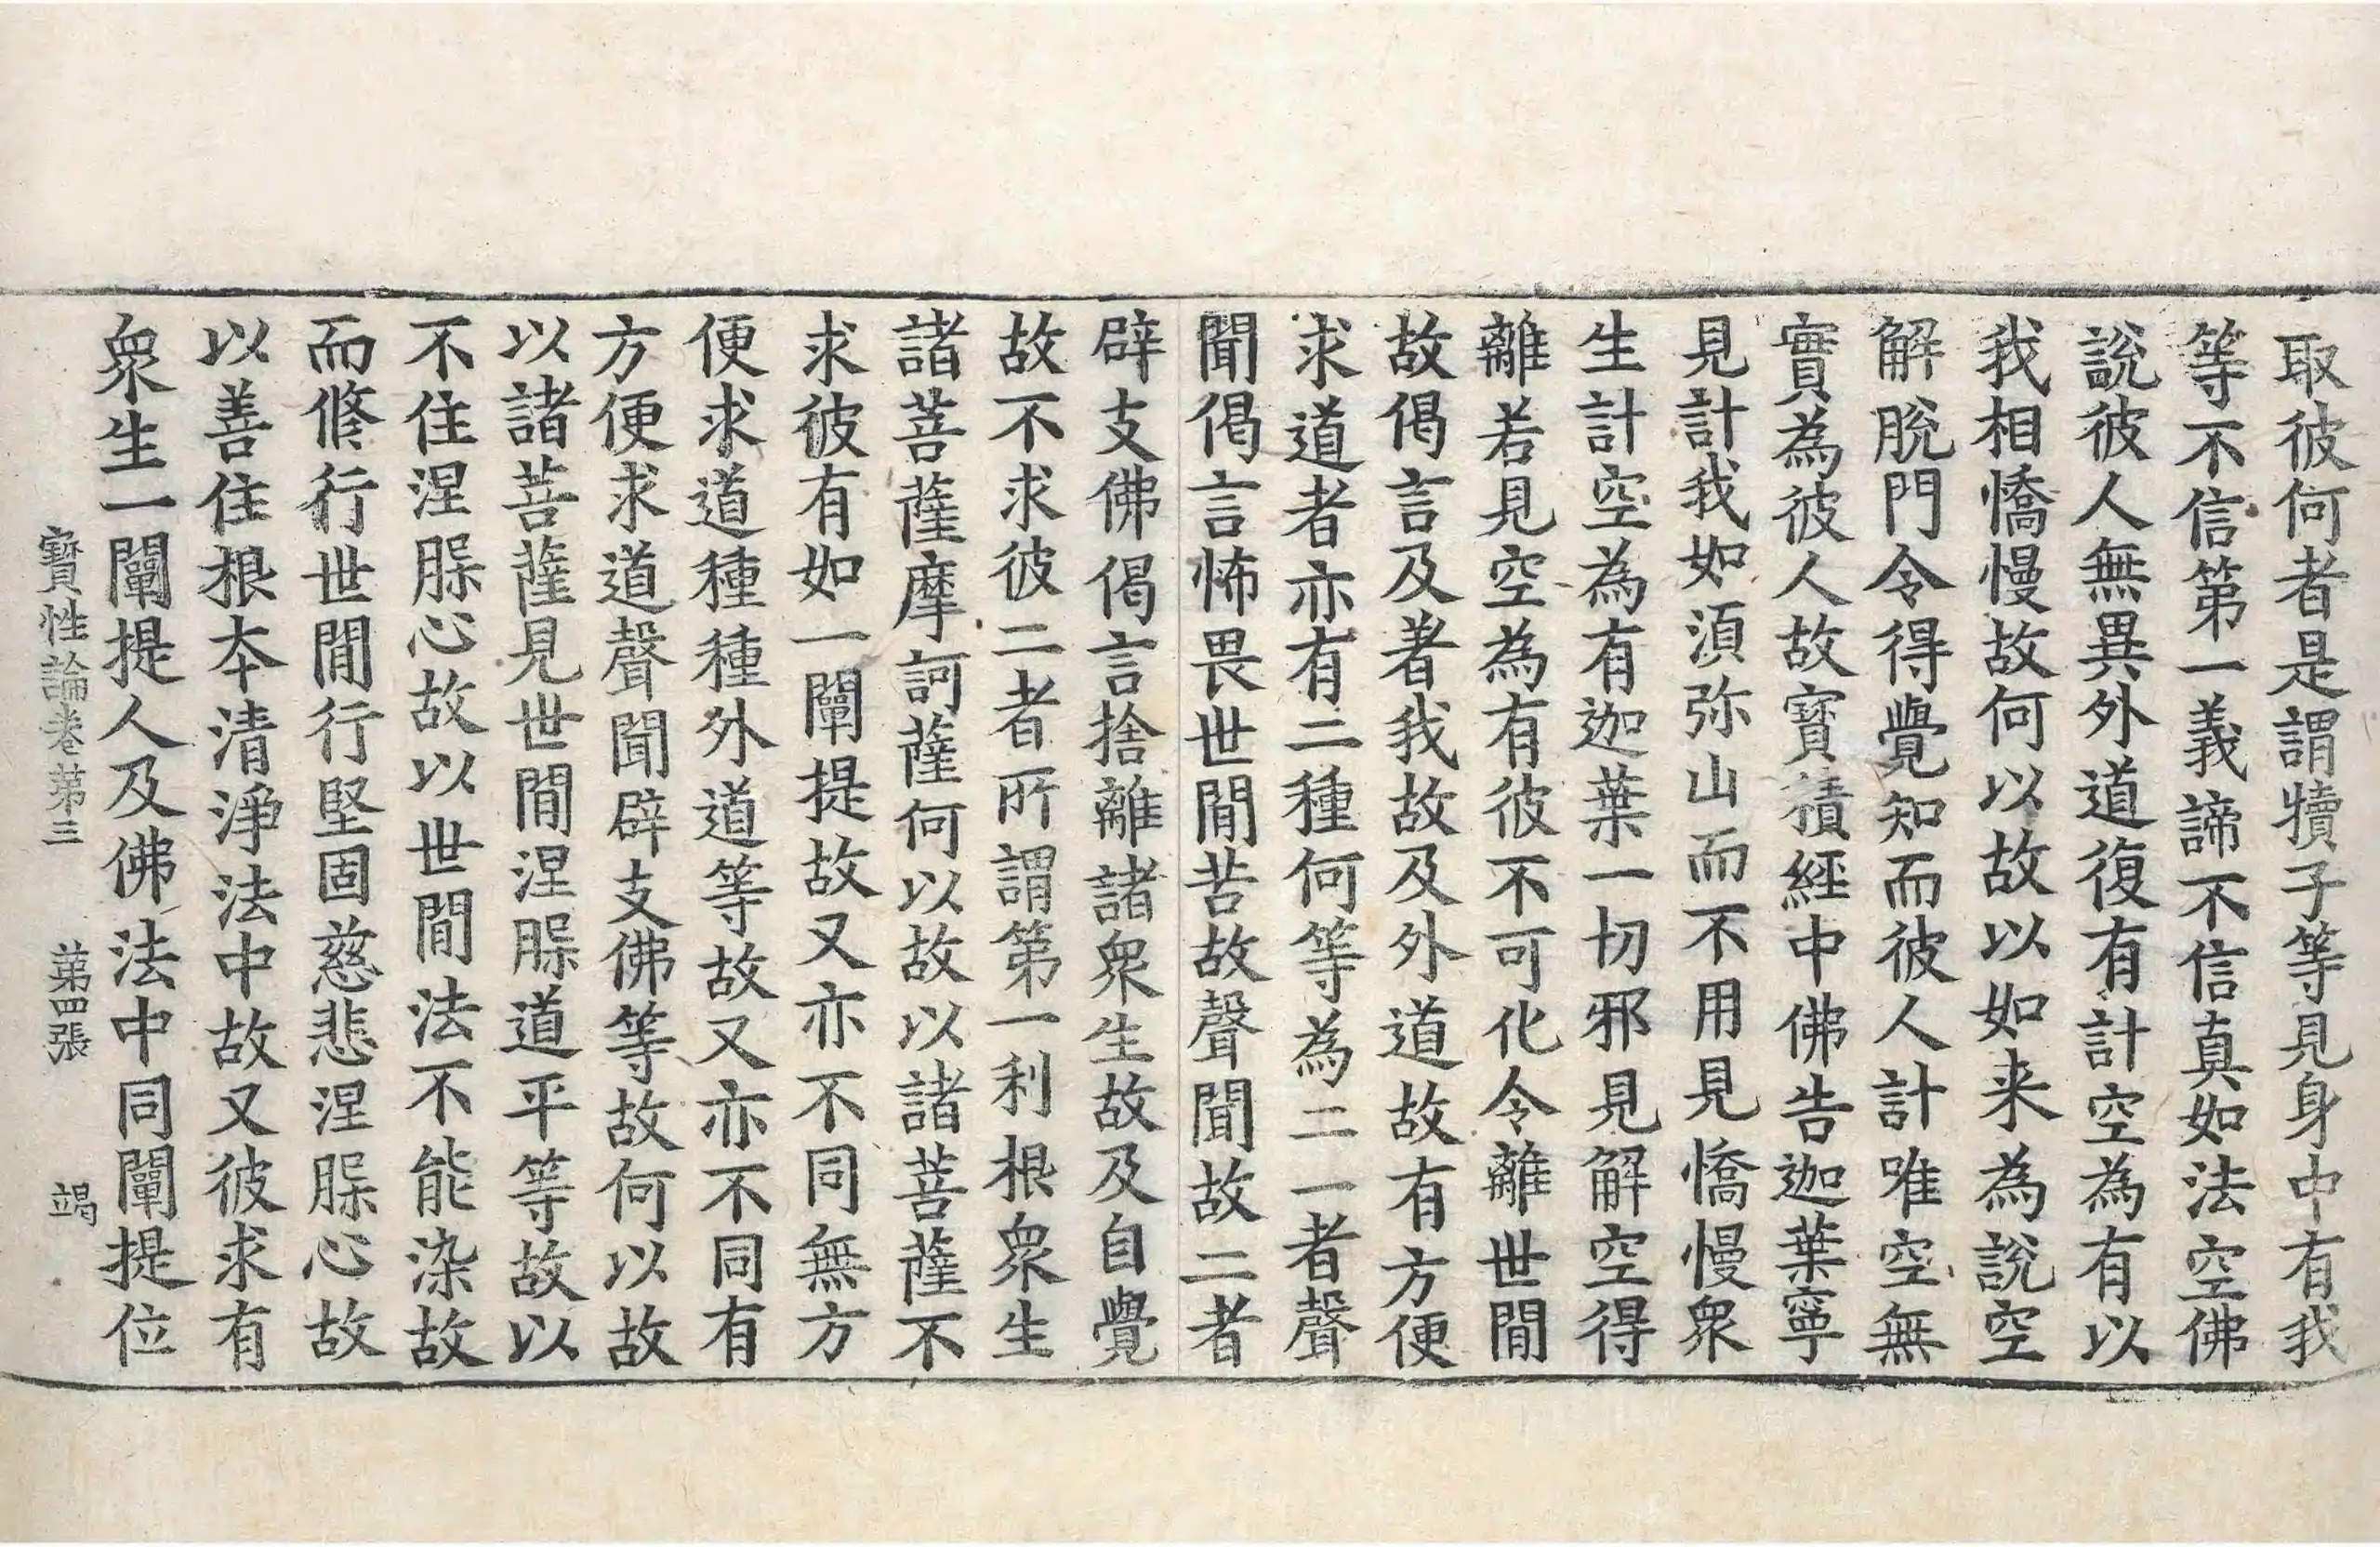 取彼何者是謂犢子等見身中有我
等不信第一義諦不信真如法空佛
說彼人無異外道復有計空為有以
我相憍慢故何以故以如来為說空
解脫門令得覺知而彼人計唯空無
實為彼人故寶積經中佛告迦葉寧
見計我如湏弥山而不用見憍慢衆
生計空為有迦葉一切邪見解空得
離若見空為有彼不可化令離世閒
故偈言及著我故及外道故有方便
求道者亦有二種何等為二一者聲
聞偈言怖畏世閒苦故聲聞故二者
辟支佛偈言捨離諸衆生故及自覺
故不求彼二者所謂第一利根衆生
諸菩薩摩訶薩何以故以諸菩薩不
求彼有如一闡提故又亦不同無方
便求道種種外道等故又亦不同有
方便求道聲聞辟支佛等故何以故
以諸菩薩見世閒涅槃道平等故以
不住涅槃心故以世閒法不能染故
而修行世閒行堅固慈悲涅槃心故
以善住根夲清淨法中故又彼求有
衆生一闡提人及佛法中同闡提位
寶性論卷苐三 苐四張 竭